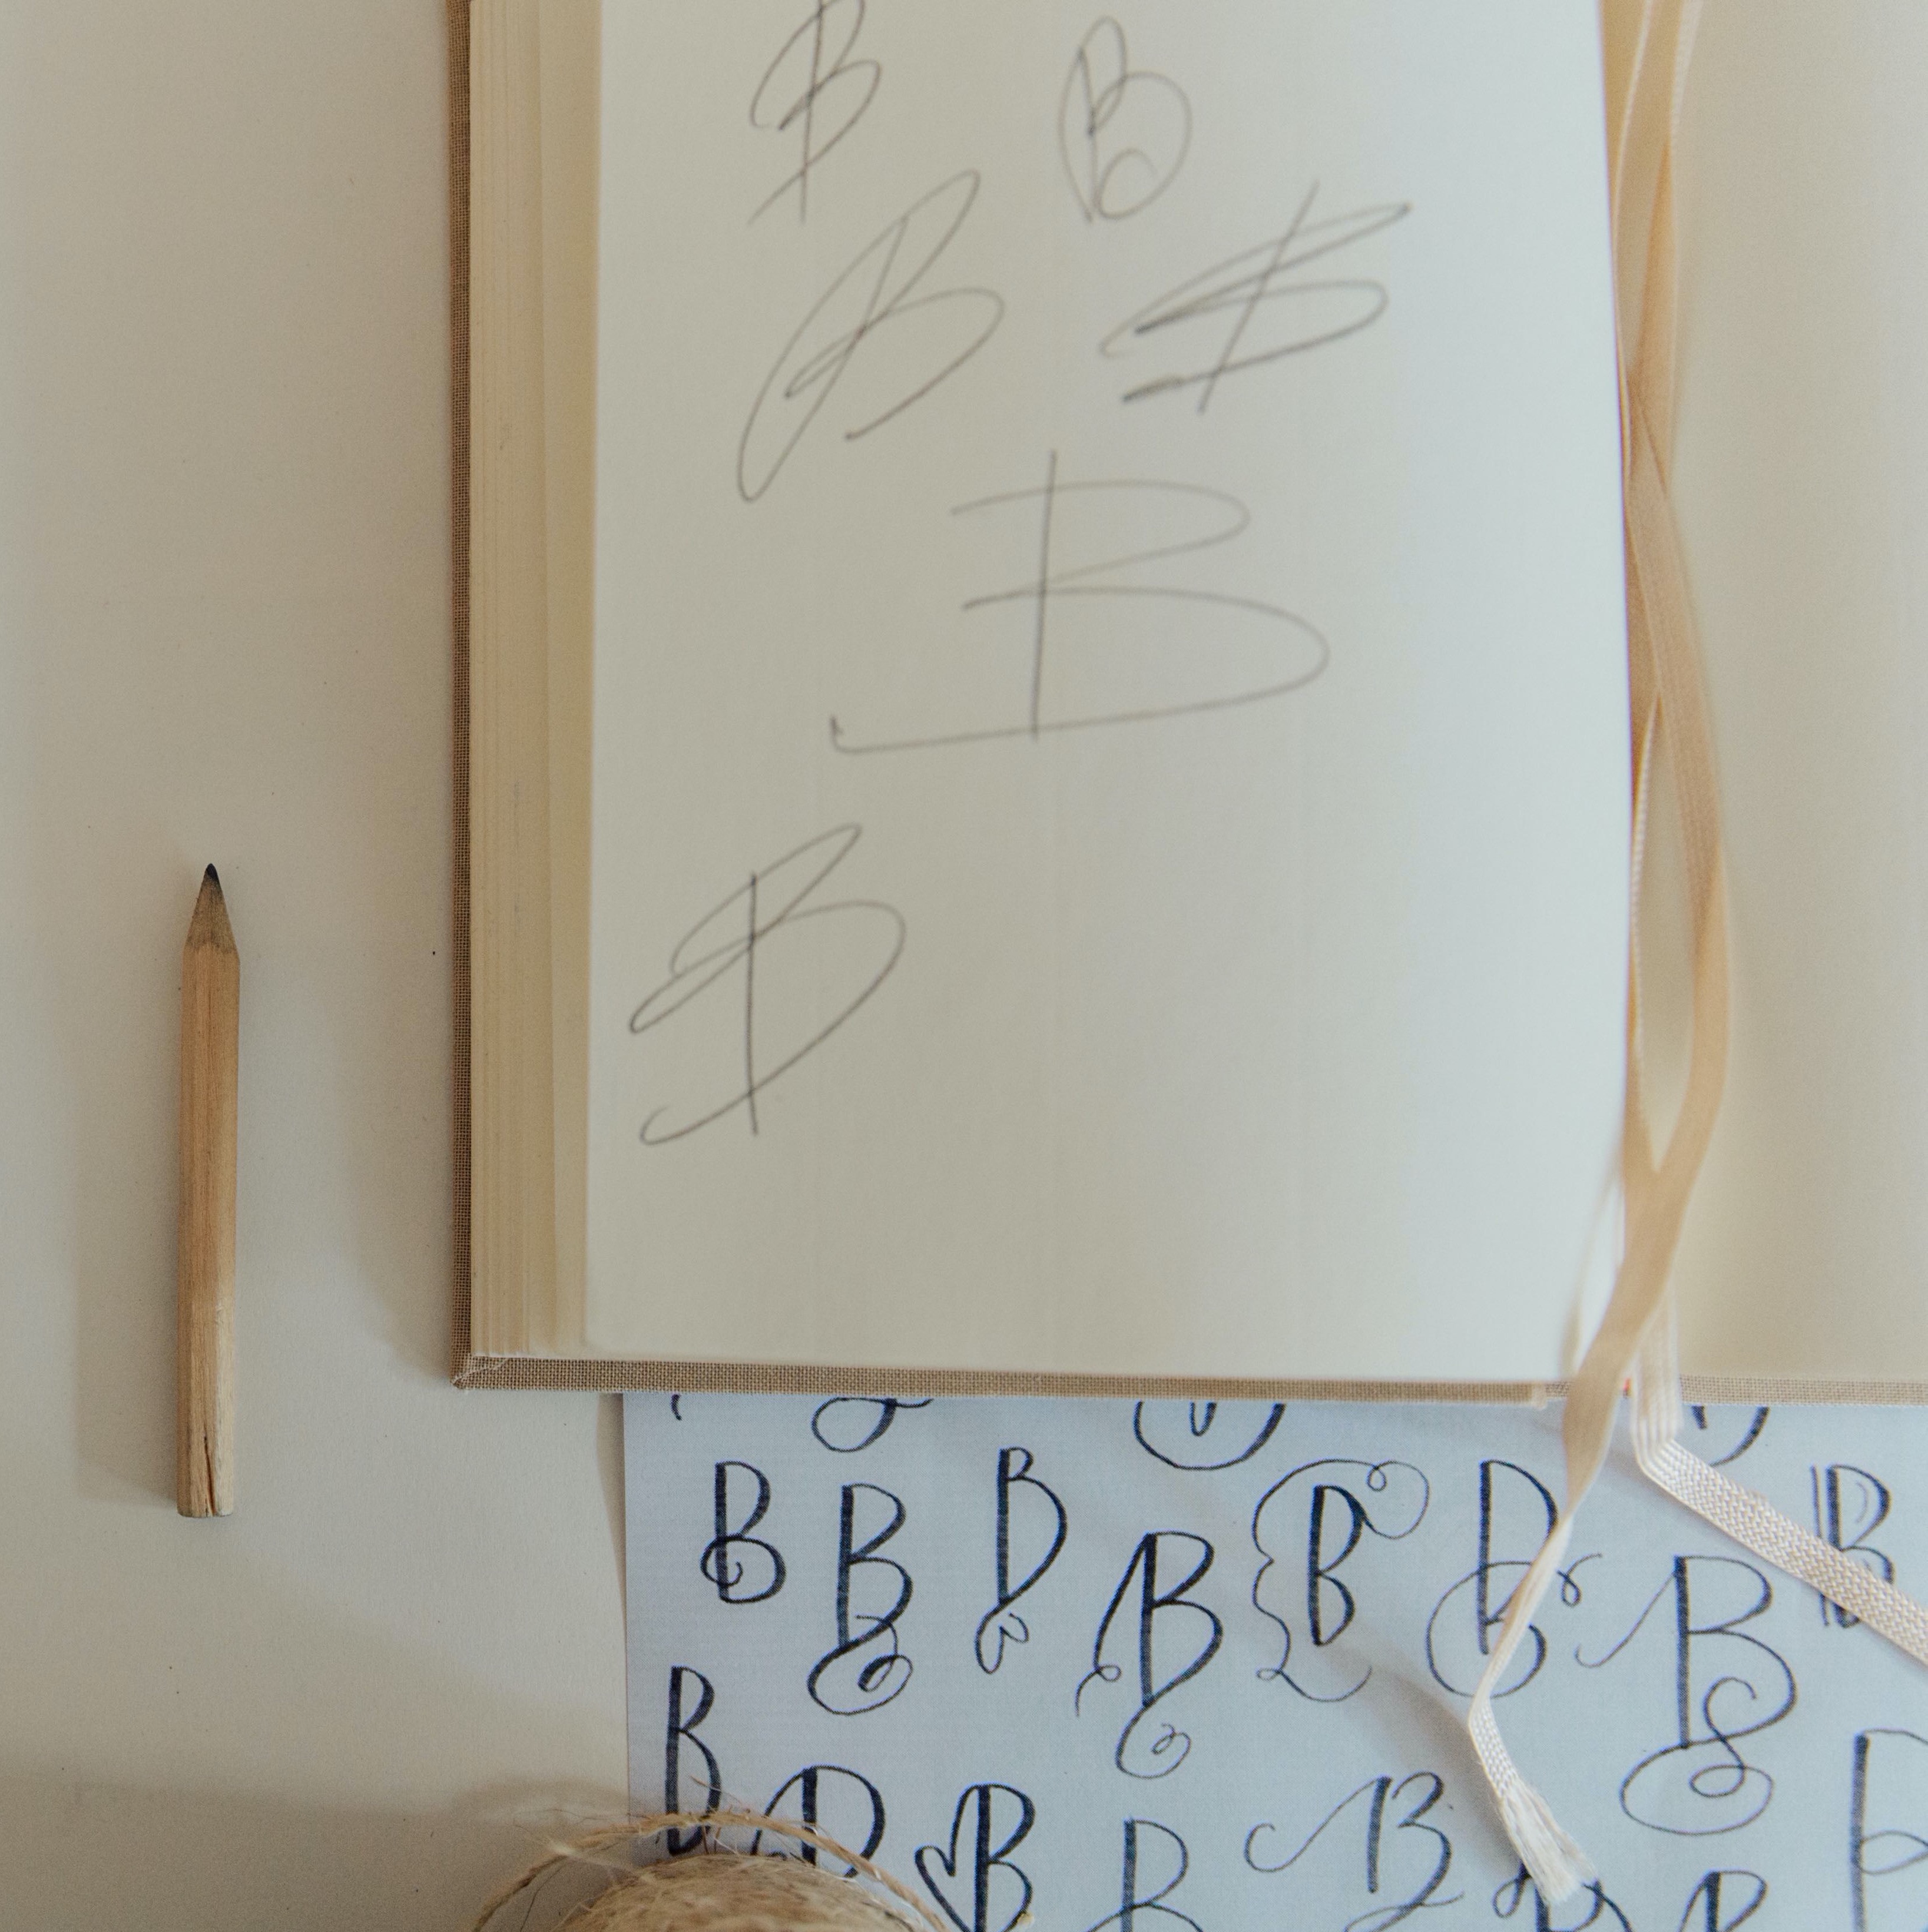 B B
B B
B
B
B B B B B B B B
B B B B B B B